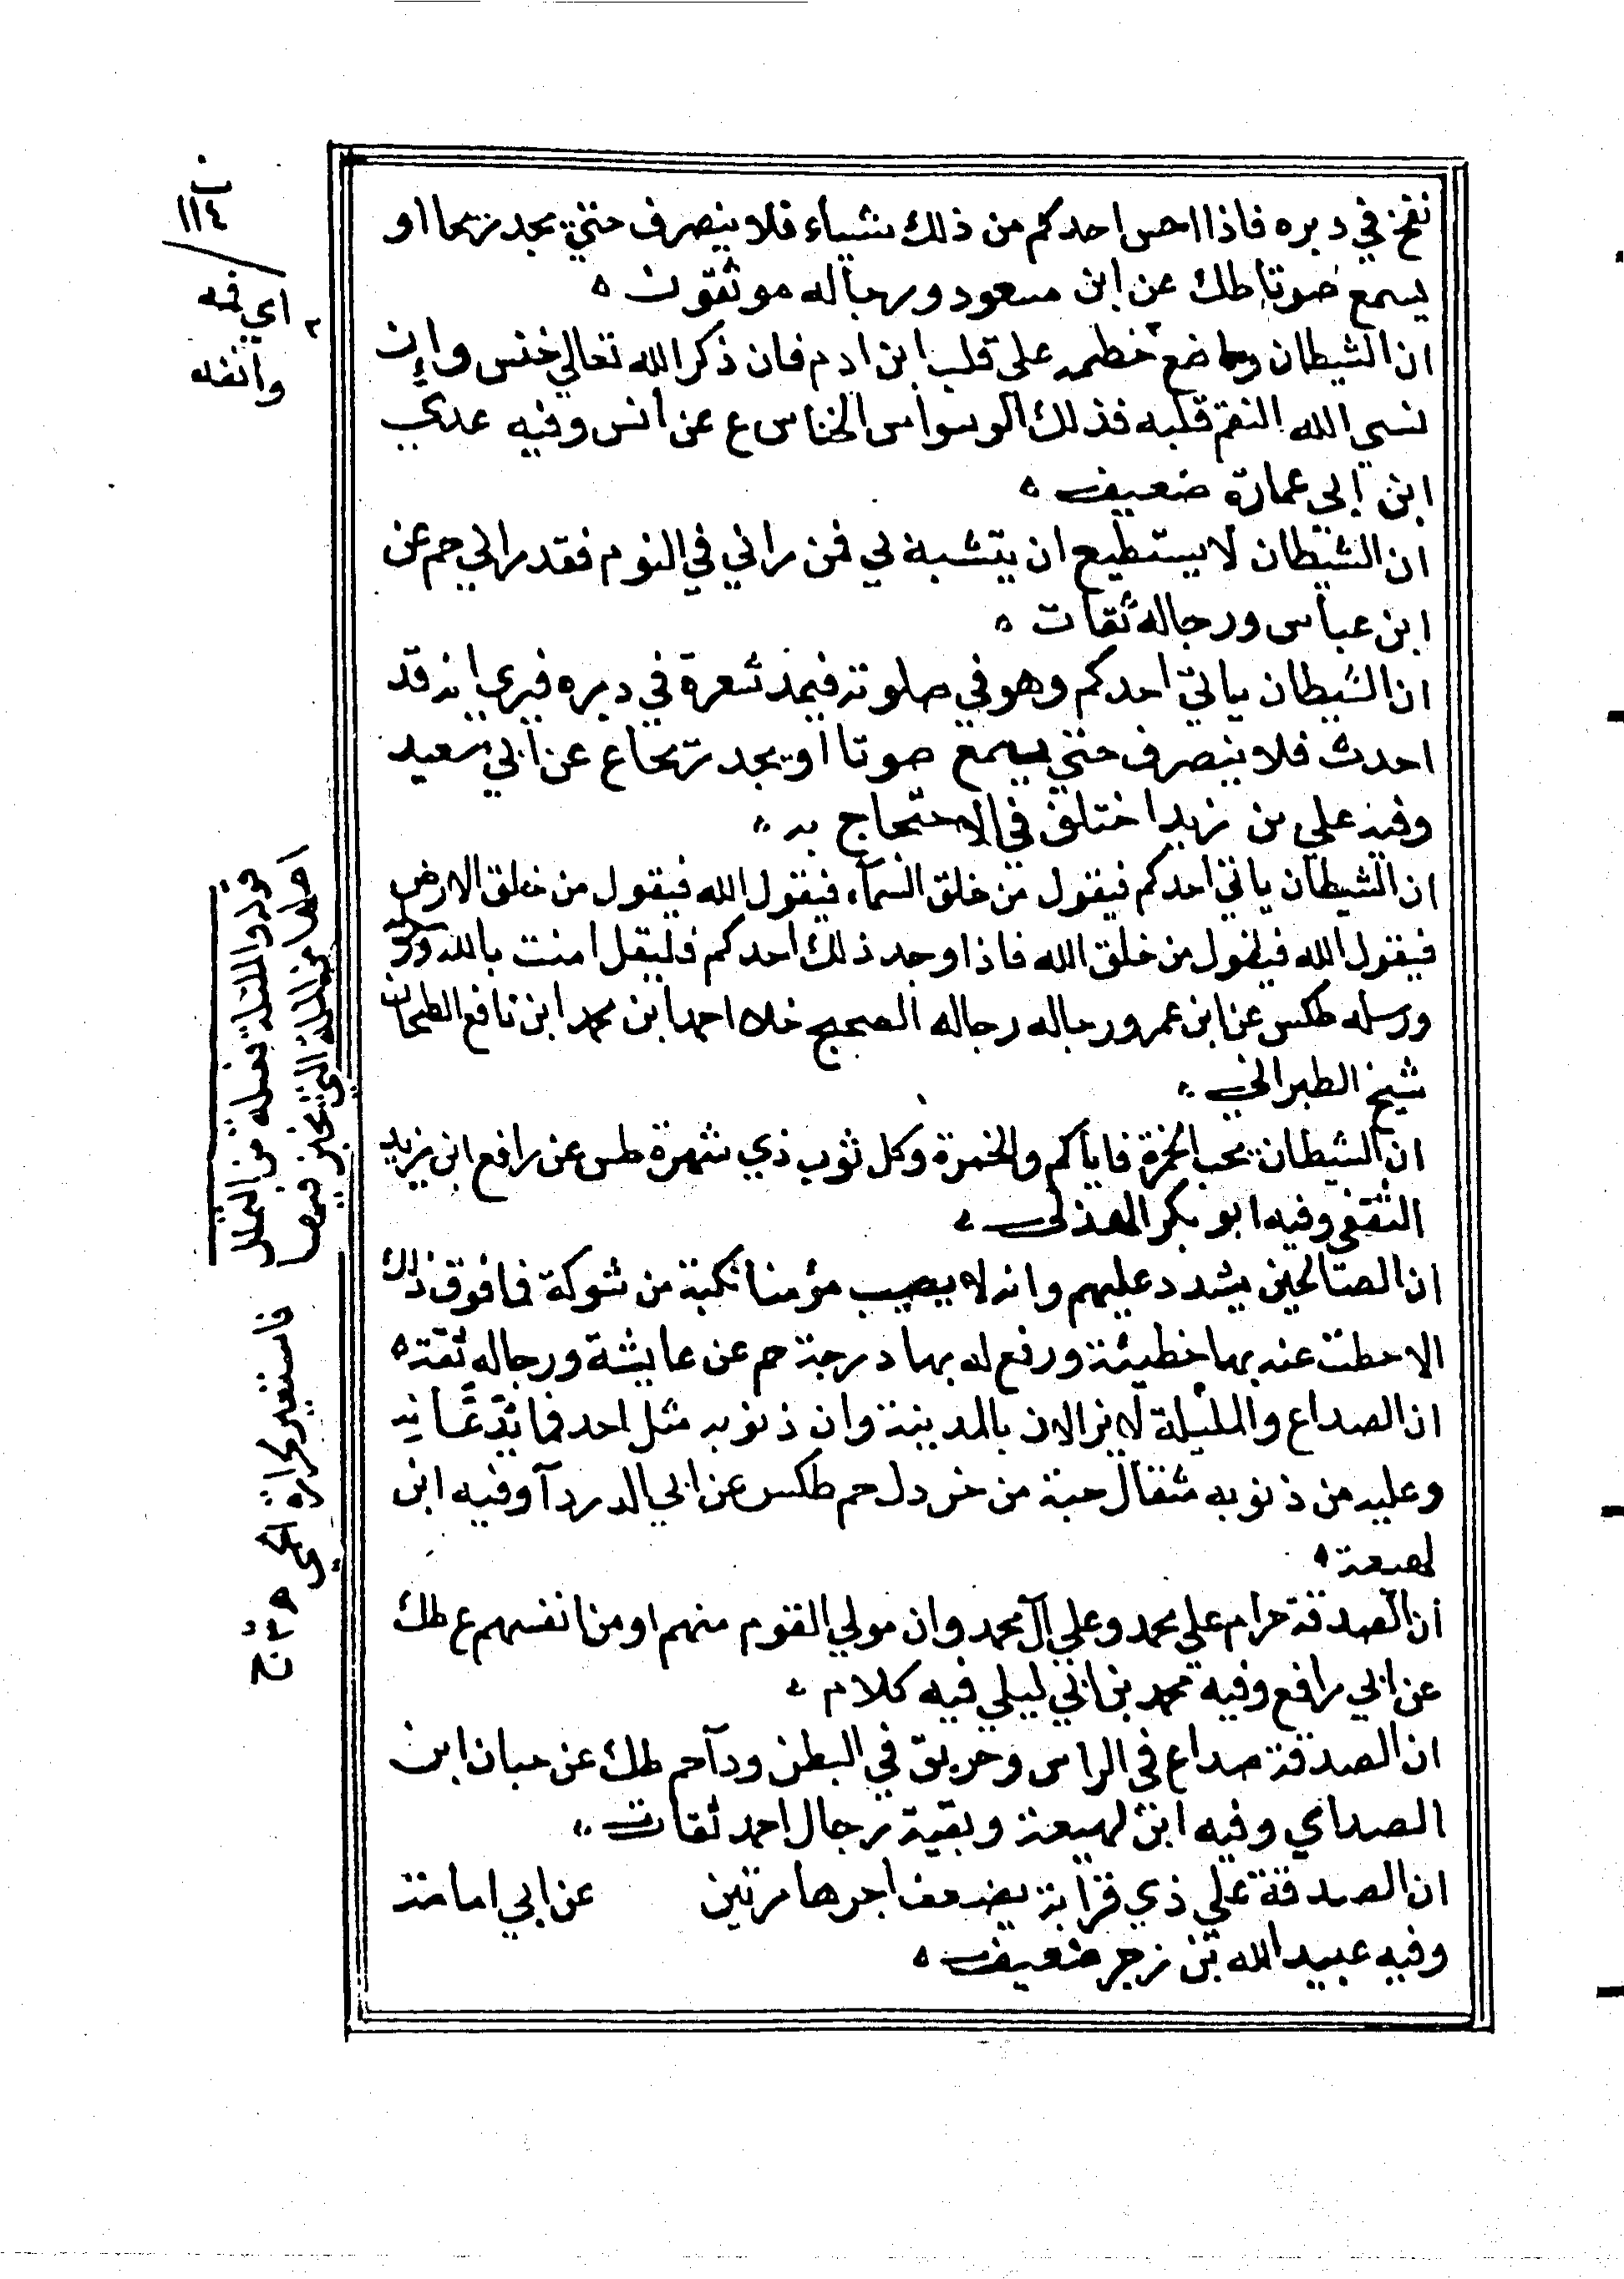 نفخ في دبره فاذا احس احدكم من ذلك شياء فلا ينصرف حتي يجد ريحا او
يسمع صوتا طك عن ابن مسعود ورجاله موثقون
ان الشيطان واضع خطمه علي قلب ابن ادم فان ذكر الله تعالي خنس وإن
نسي الله التقم قلبه فذلك الوسواس الخناس ع عن أنس وفيه عدي
ابن ابي عمارة ضعيف
ان الشيطان لا يستطيع ان يتشبه بي فمن راني في النوم فقد راني حم عن
ابن عباس ورجاله ثقات
ان الشيطان ياتي احدكم وهو في صلوته فيمد شعرة في دبره فيري انه قد
احدث فلا ينصرف حتي يسمع صوتا او يجد ريحا ع عن ابي سعيد
وفيه علي بن زيد اختلف في الاحتجاج به
ان الشيطان ياتي احدكم فيقول من خلق السمآء فيقول الله فيقول من خلق الارض
فيقول الله فيقول من خلق الله فاذا وجد ذلك احدكم فليقل امنت بالله
ورسله طكس عن ابن عمر ورجاله رجاله الصحيح خلا احمد ابن محمد ابن نافع الطحان
شيخ الطبراني
ان الشيطان يحب الحمرة فاياكم والحمرة وكل ثوب ذي شهرة طس عن رافع ابن يزيد
الثقفي وفيه ابو بكر الهذلي
ان الصالحين يشدد عليهم وانه لا يصيب مؤمنا نكبة من شوكة فما فوق ذلك
الا حطت عنه بها خطيئة ورفع له بها درجة حم عن عايشة ورجاله ثقة
ان الصداع والمليلة لا يزالان بالمدينة وان ذنوبه مثل احد فما يدعانه
وعليه من ذنوبه مثقال حبة من خردل حم طكس عن ابي الدردآ وفيه ابن
لهيعة
ان الصدقة حرام علي محمد وعلي آل محمد وان مولي القوم منهم او من انفسهم ع طك
عن ابي رافع وفيه محمد بن ابي ليلي فيه كلام
ان الصدقة صداع في الراس وحريق في البطن ودآ حم طك عن حبان ابن
الصداي وفيه ابن لهيعة وبقية رجال احمد ثقات
ان الصدقة علي ذي قرابة يضعف اجرها مرتين عن ابي امامة
وفيه عبيد الله بن زجر ضعيف
١١٤
اي فمه
وانفه
قوله والمليلة فعيلة من الملل
اصلها من الملة التي يخبز فيها
فاستعير لحرارة الحمي